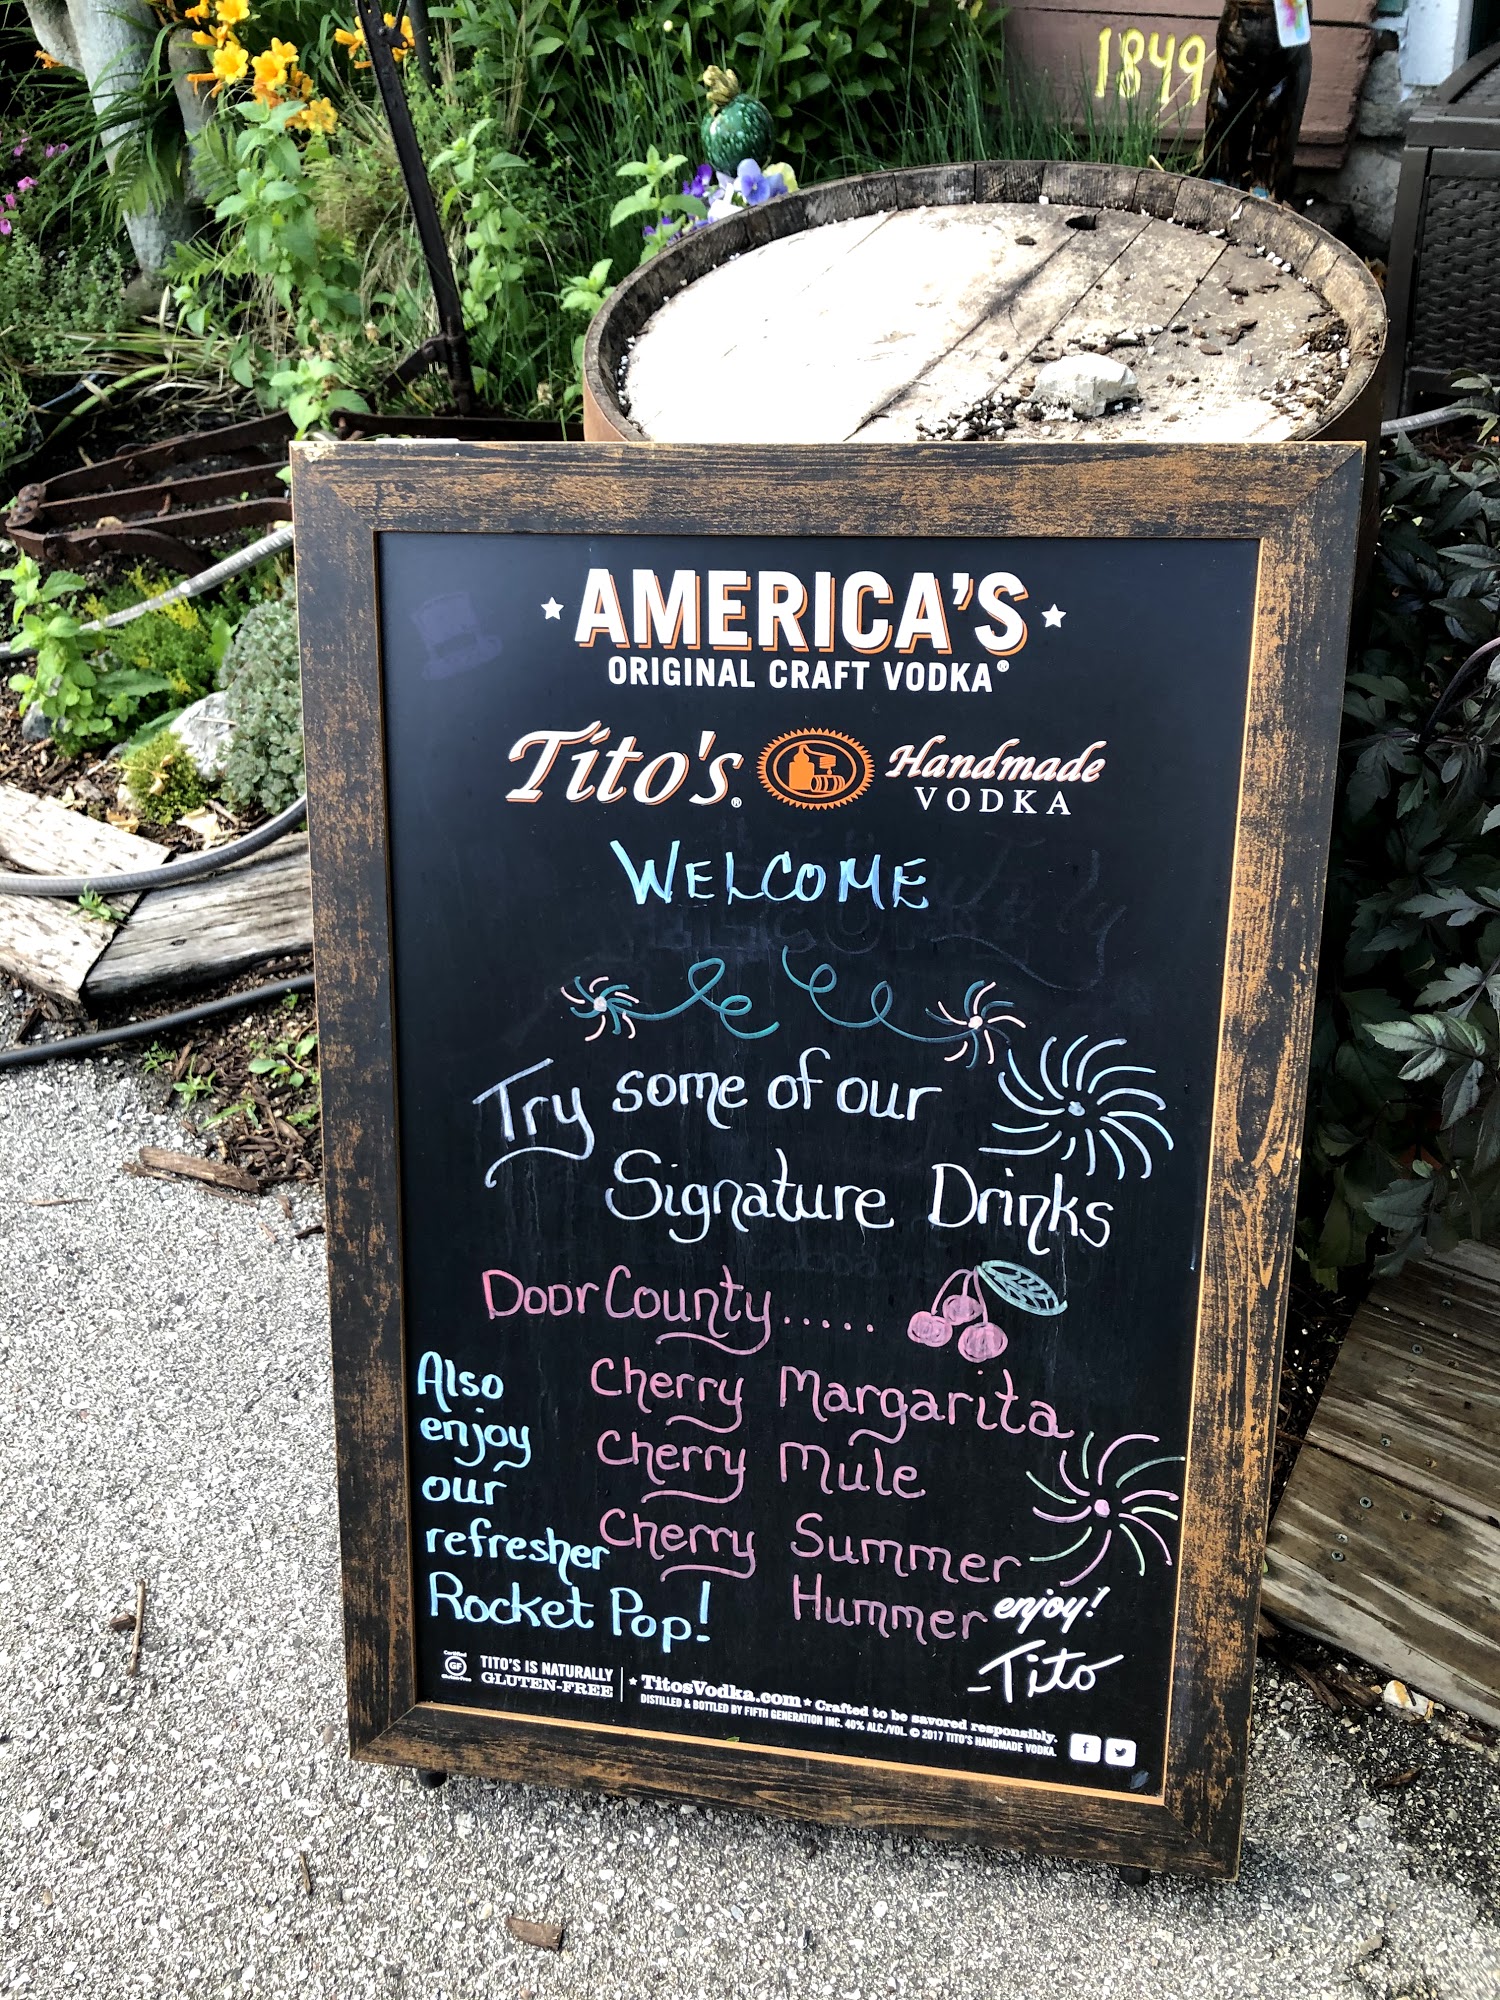 1849
AMERICA'S
ORIGINAL CRAFT VODKA®
Tito's® Handmade
VODKA
WELCOME
Try some of our
Signature Drinks
Door County.....
Cherry Margarita
Cherry Mule
Cherry Summer
Hummer
Also
enjoy
our
refresher
Rocket Pop!
enjoy!
-Tito
Certified
GF
Gluten-Free
TITO'S IS NATURALLY
GLUTEN-FREE
* TitosVodka.com * Crafted to be savored responsibly.
DISTILLED & BOTTLED BY FIFTH GENERATION INC. 40% ALC./VOL. © 2017 TITO'S HANDMADE VODKA.
f